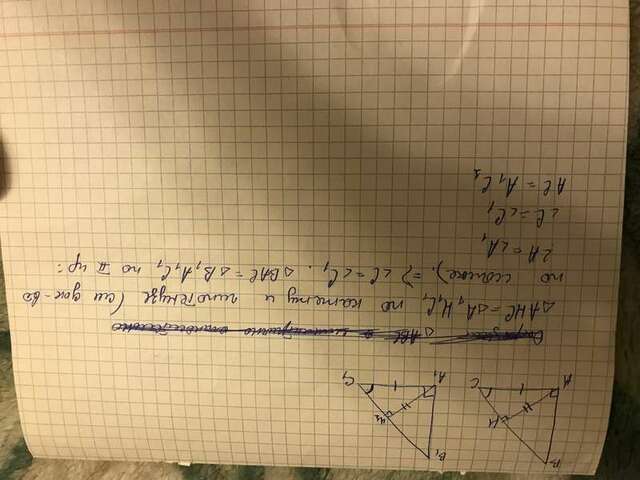 B
B₁
H
H₁
A
C
A₁
C₁
△ABC
△AHC = △A₁H₁C₁ по катету и гипотенузе (см док-во
по ссылке) ⇒ ∠C = ∠C₁. △BAC = △B₁A₁C₁ по II пр:
∠A = ∠A₁
∠C = ∠C₁
AC = A₁C₁